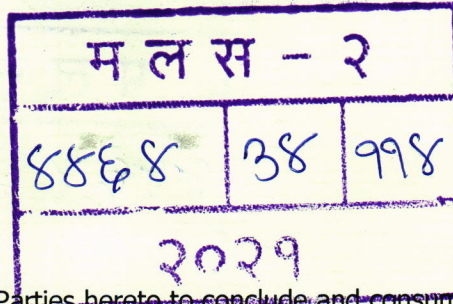 म ल स - २
४४६४ ३४ ११४
२०२१
Parties hereto to conclude and